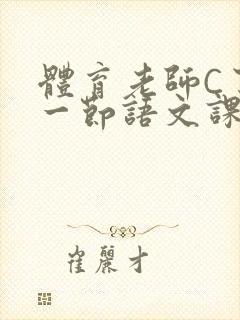 體育老師C
一節語文課
崔麗才